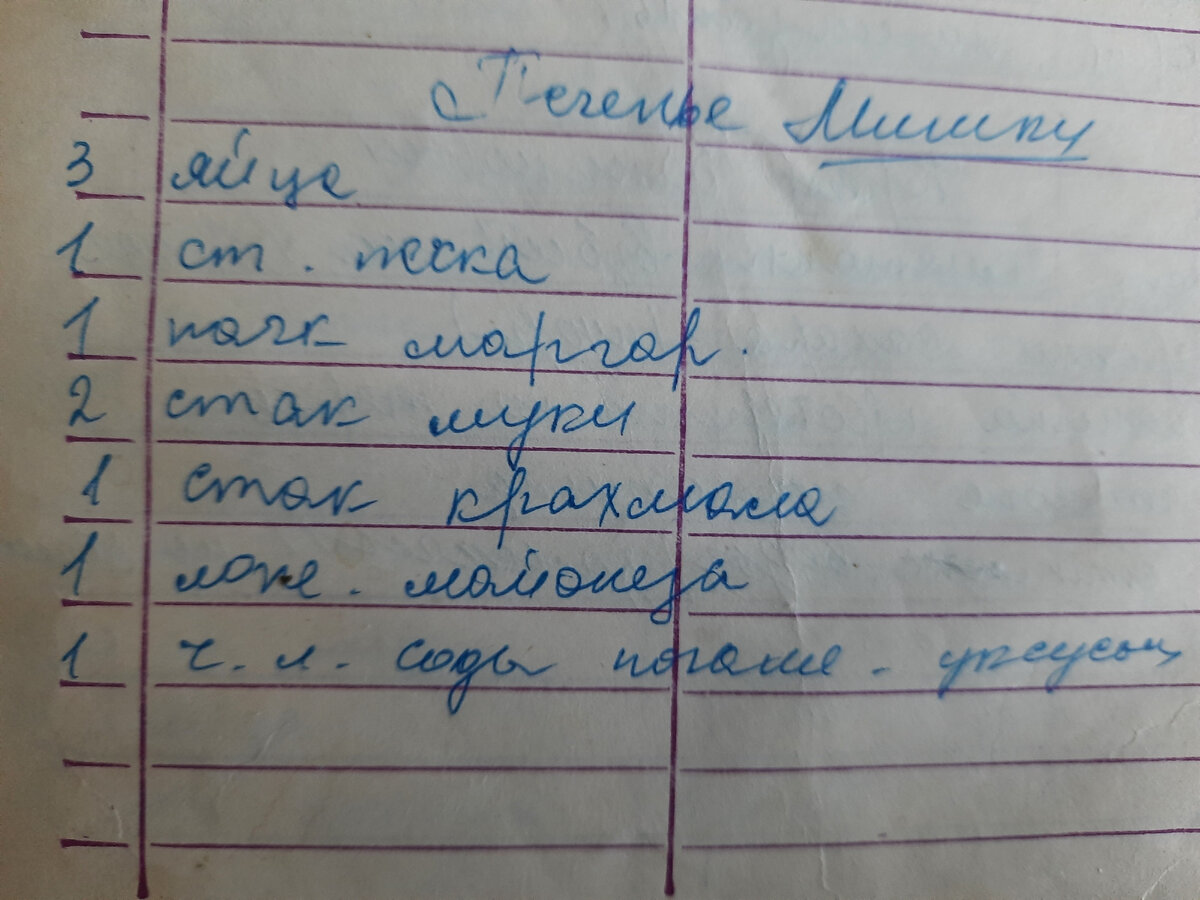 Печенье Мишки
3 яйца
1 ст. песка
1 пачк маргар.
2 стак муки
1 стак крахмала
1 лож. майонеза
1 ч. л. соды погаше. уксусом